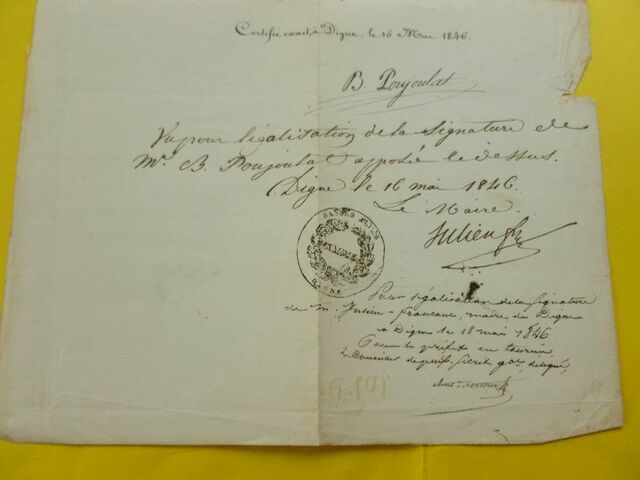 Certifié exact, à Digne, le 16 Mai 1846.
B. Poujoulat
Vu pour légalisation de la Signature de
Mr. B. Poujoulat apposée ci dessus.
Digne le 16 mai 1846.
Le Maire.
Julien fr
BASSES ALPES
MAIRIE
DIGNE
Pour légalisation de la signature
de M. Julien françois, maire de Digne
à Digne le 18 mai 1846
Pour le préfet en tournée
Le Conseiller de préf. Secrét. gal. délégué,